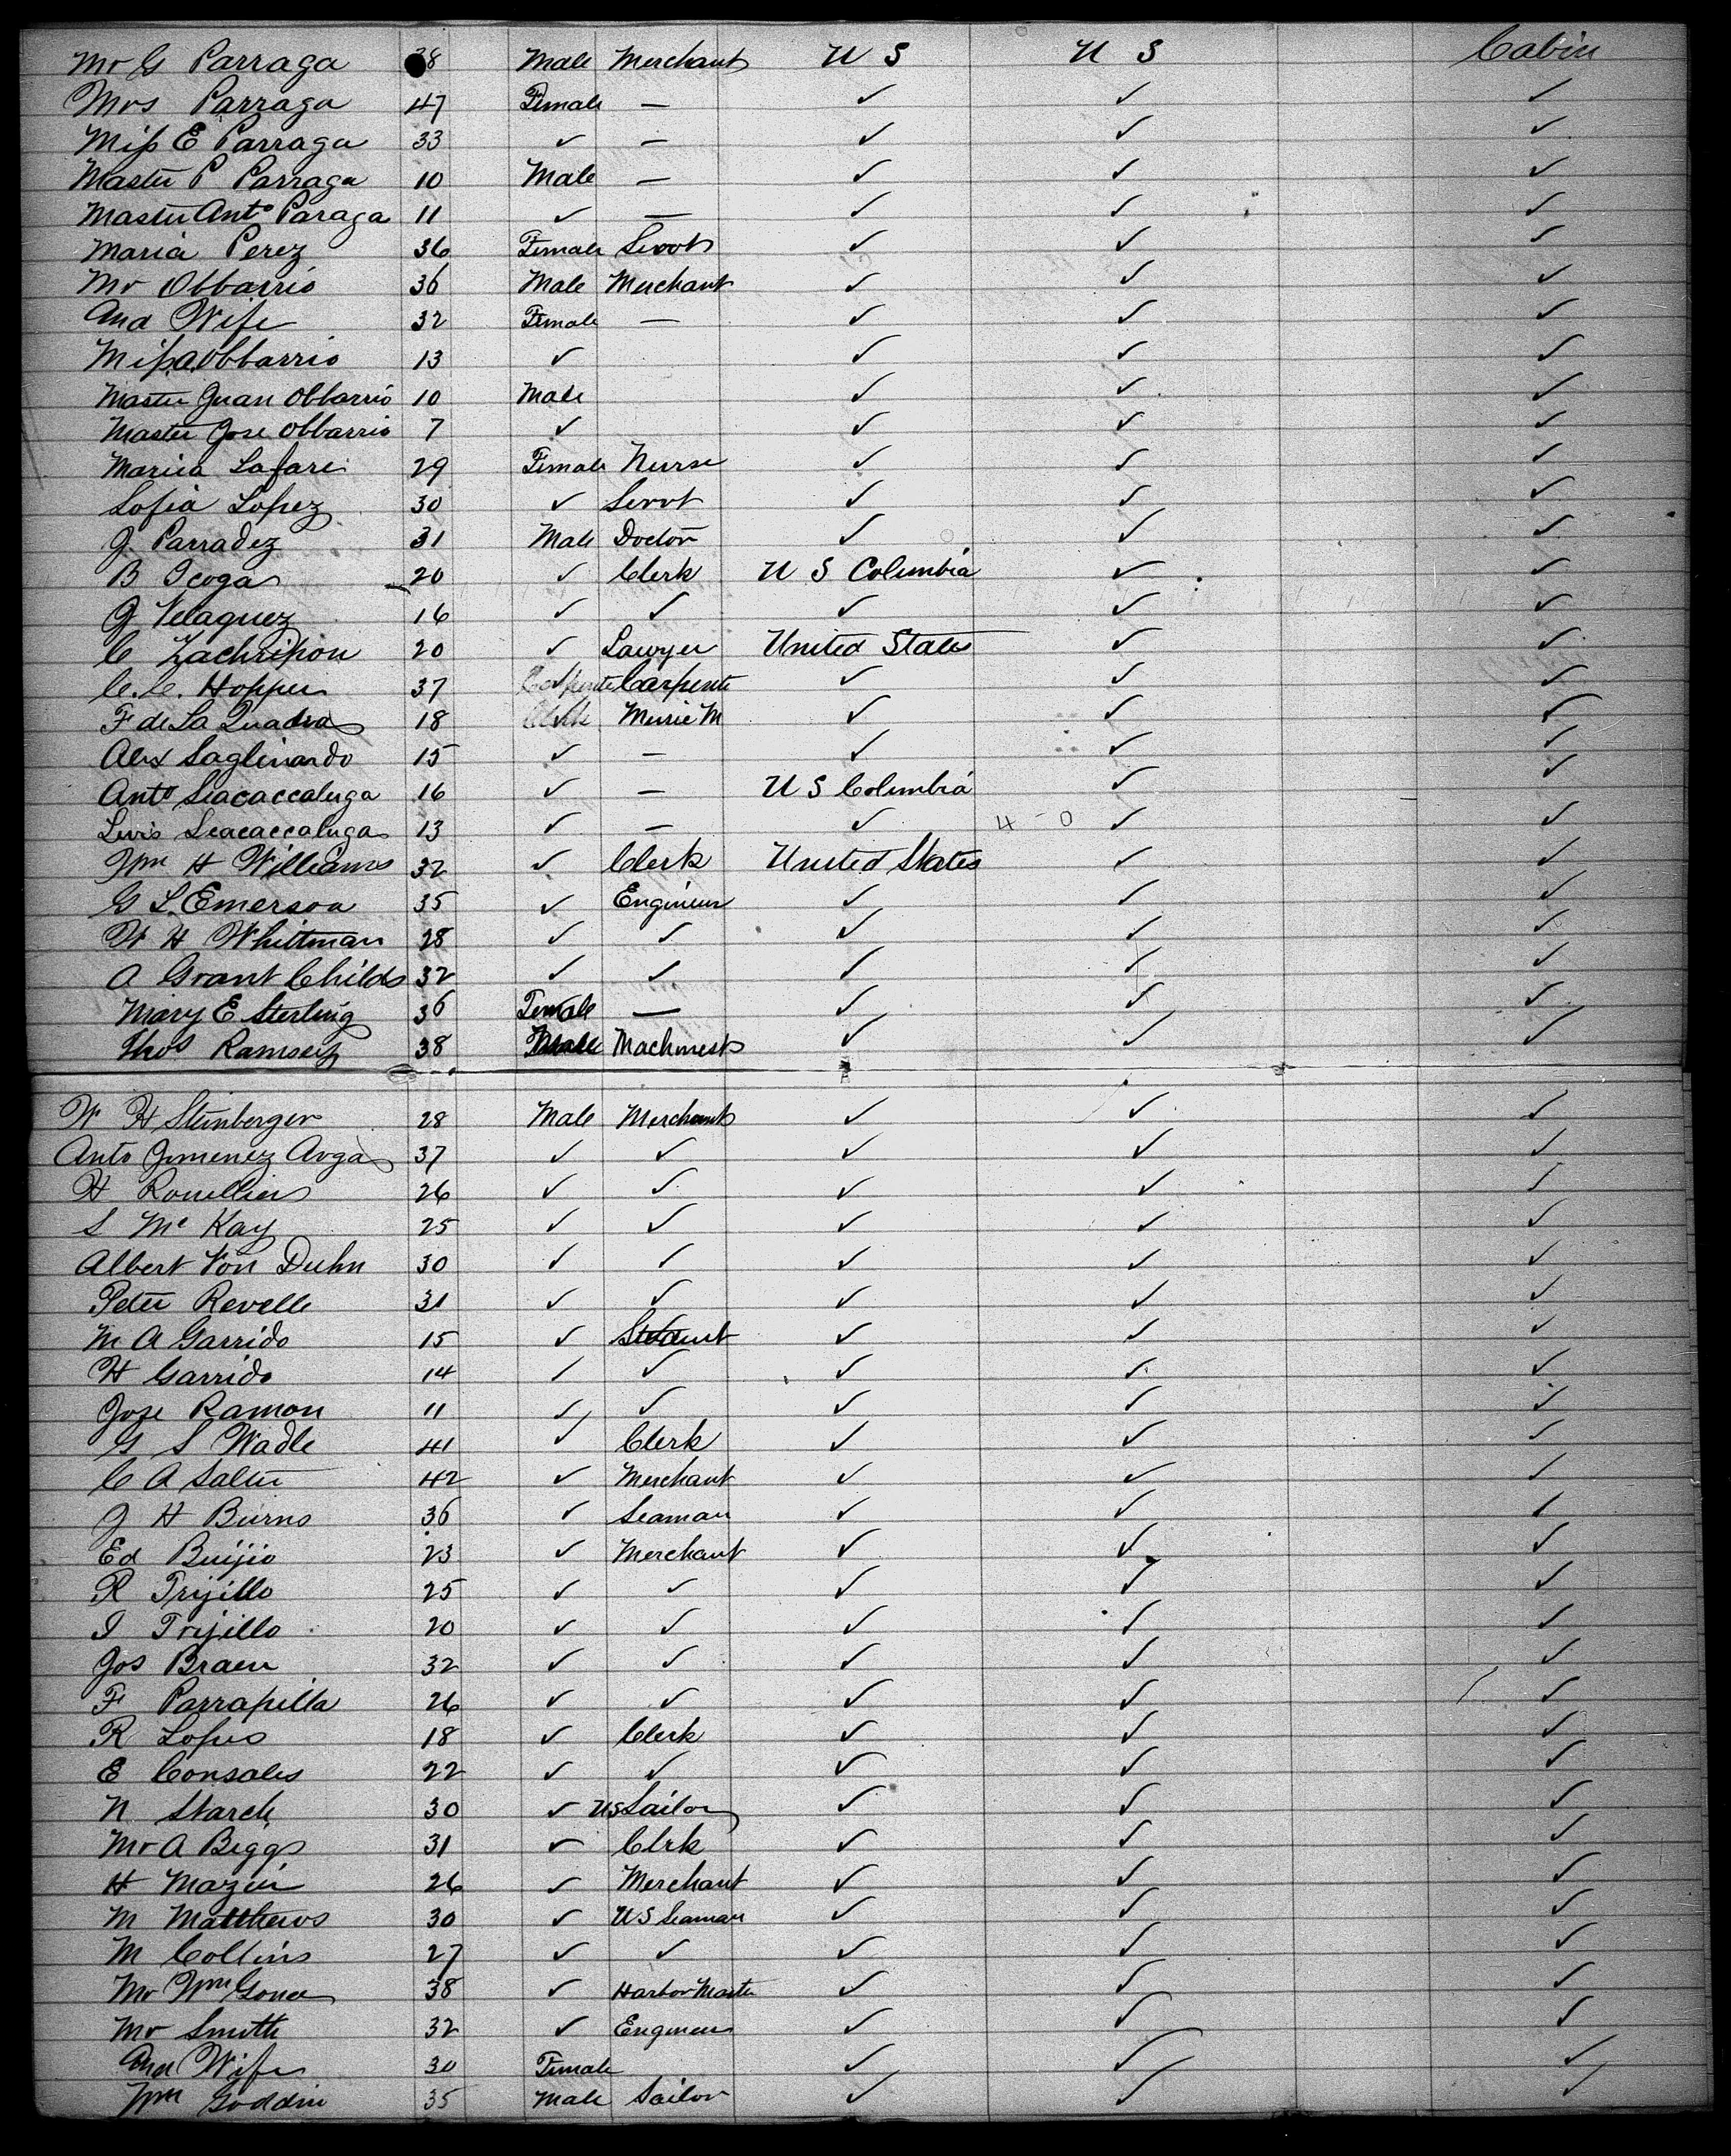 Mr G Parraga 38 Male Merchant U S U S Cabin
Mrs Parraga 47 Female — ✓ ✓ ✓
Miss E Parraga 33 ✓ — ✓ ✓ ✓
Master P Parraga 10 Male — ✓ ✓ ✓
Master Anto Paraga 11 ✓ — ✓ ✓ ✓
Maria Perez 36 Female Servt ✓ ✓ ✓
Mr Obbarrio 36 Male Merchant ✓ ✓ ✓
And Wife 32 Female — ✓ ✓ ✓
Miss A Obbarrio 13 ✓ ✓ ✓ ✓
Master Juan Obbarrio 10 Male ✓ ✓ ✓
Master Jose Obbarrio 7 ✓ ✓ ✓ ✓
Maria Lafare 29 Female Nurse ✓ ✓ ✓
Sofia Lopez 30 ✓ Servt ✓ ✓ ✓
J. Parradez 31 Male Doctor ✓ ✓ ✓
B Icoga 20 ✓ Clerk U S Columbia ✓ ✓
J Velaquez 16 ✓ ✓ ✓ ✓ ✓
C Zachrisson 20 ✓ Lawyer United States ✓ ✓
C. C. Hopper 37 Carpente ✓ ✓ ✓
F de La Quadra 18 ✓ Music M ✓ ✓ ✓
Alex Saglinardo 15 ✓ — ✓ ✓ ✓
Anto Seacaccaluga 16 ✓ — U S Columbia ✓ ✓
Luis Seacaccaluga 13 ✓ — ✓ 4 - 0 ✓ ✓
Wm H Williams 32 ✓ Clerk United States ✓ ✓
G L. Emerson 35 ✓ Engineer ✓ ✓ ✓
W H Whittman 28 ✓ ✓ ✓ ✓ ✓
A Grant Childs 32 ✓ ✓ ✓ ✓ ✓
Mary E Sterling 36 Female — ✓ ✓ ✓
Thos Ramsey 38 Male Machinest ✓ ✓ ✓
W H Steinberger 28 Male Merchant ✓ ✓ ✓
Anto Jimenez Arga 37 ✓ ✓ ✓ ✓ ✓
H Rouellier 26 ✓ ✓ ✓ ✓ ✓
S Mc Kay 25 ✓ ✓ ✓ ✓ ✓
Albert Von Duhn 30 ✓ ✓ ✓ ✓ ✓
Peter Revelle 31 ✓ ✓ ✓ ✓ ✓
M A Garrido 15 ✓ ✓ ✓ ✓
H Garrido 14 ✓ ✓ ✓ ✓ ✓
Jose Ramon 11 ✓ ✓ ✓ ✓ ✓
G S Wadle 41 ✓ Clerk ✓ ✓ ✓
C A Salter 42 ✓ Merchant ✓ ✓ ✓
J H Burns 36 ✓ Seaman ✓ ✓ ✓
Ed Buijio 23 ✓ Merchant ✓ ✓ ✓
R Trijillo 25 ✓ ✓ ✓ ✓ ✓
I Trijillo 20 ✓ ✓ ✓ ✓ ✓
Jos Braen 32 ✓ ✓ ✓ ✓ ✓
F Parrapilla 26 ✓ ✓ ✓ ✓ ✓
R Lopes 18 ✓ Clerk ✓ ✓ ✓
E Consales 22 ✓ ✓ ✓ ✓ ✓
N Starck 30 ✓ US Sailor ✓ ✓ ✓
Mr A Beggs 31 ✓ Clrk ✓ ✓ ✓
H Mazin 26 ✓ Merchant ✓ ✓ ✓
M Matthews 30 ✓ US Seaman ✓ ✓ ✓
M Collins 27 ✓ ✓ ✓ ✓ ✓
Mr Wm Gona 38 ✓ Harbor Master ✓ ✓ ✓
Mr Smith 32 ✓ Engineer ✓ ✓ ✓
And Wife 30 Female ✓ ✓ ✓
Wm Goddin 35 Male Sailor ✓ ✓ ✓